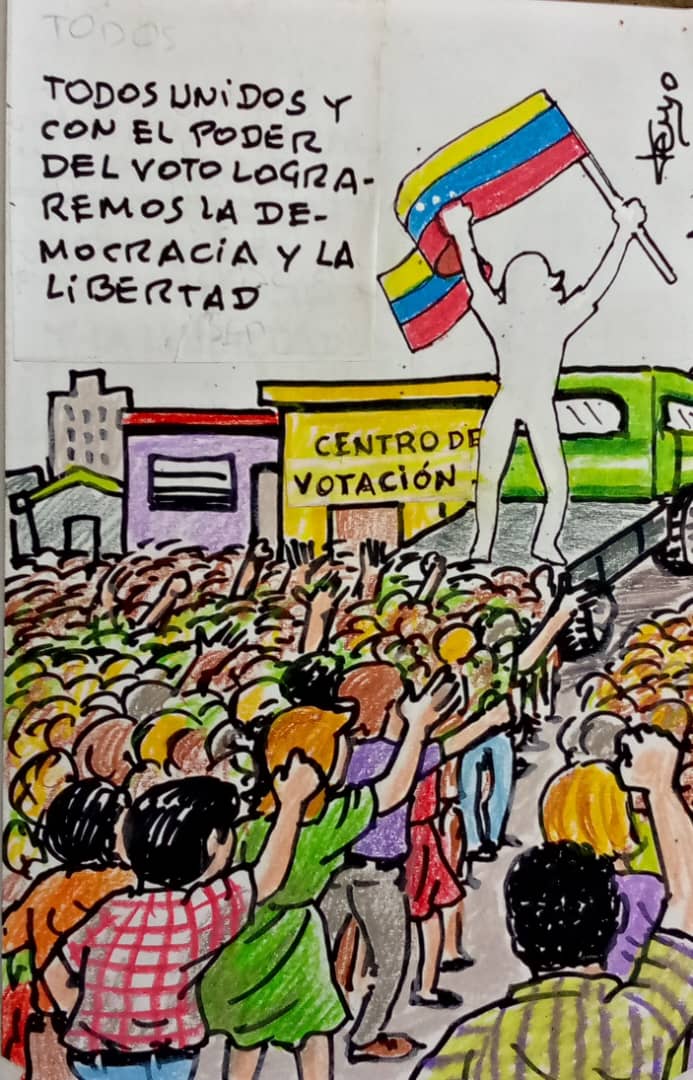 TODOS
TODOS UNIDOS Y
CON EL PODER
DEL VOTO LOGRA-
REMOS LA DE-
MOCRACIA Y LA
LIBERTAD
CENTRO DE
VOTACIÓN